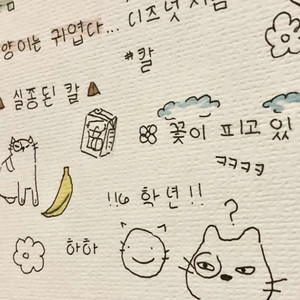 양이는 귀엽다...
디즈넛
#칼
실종된 칼
꽃이 피고 있
ㅋㅋㅋㅋ
!!6 학년!!
?
하하